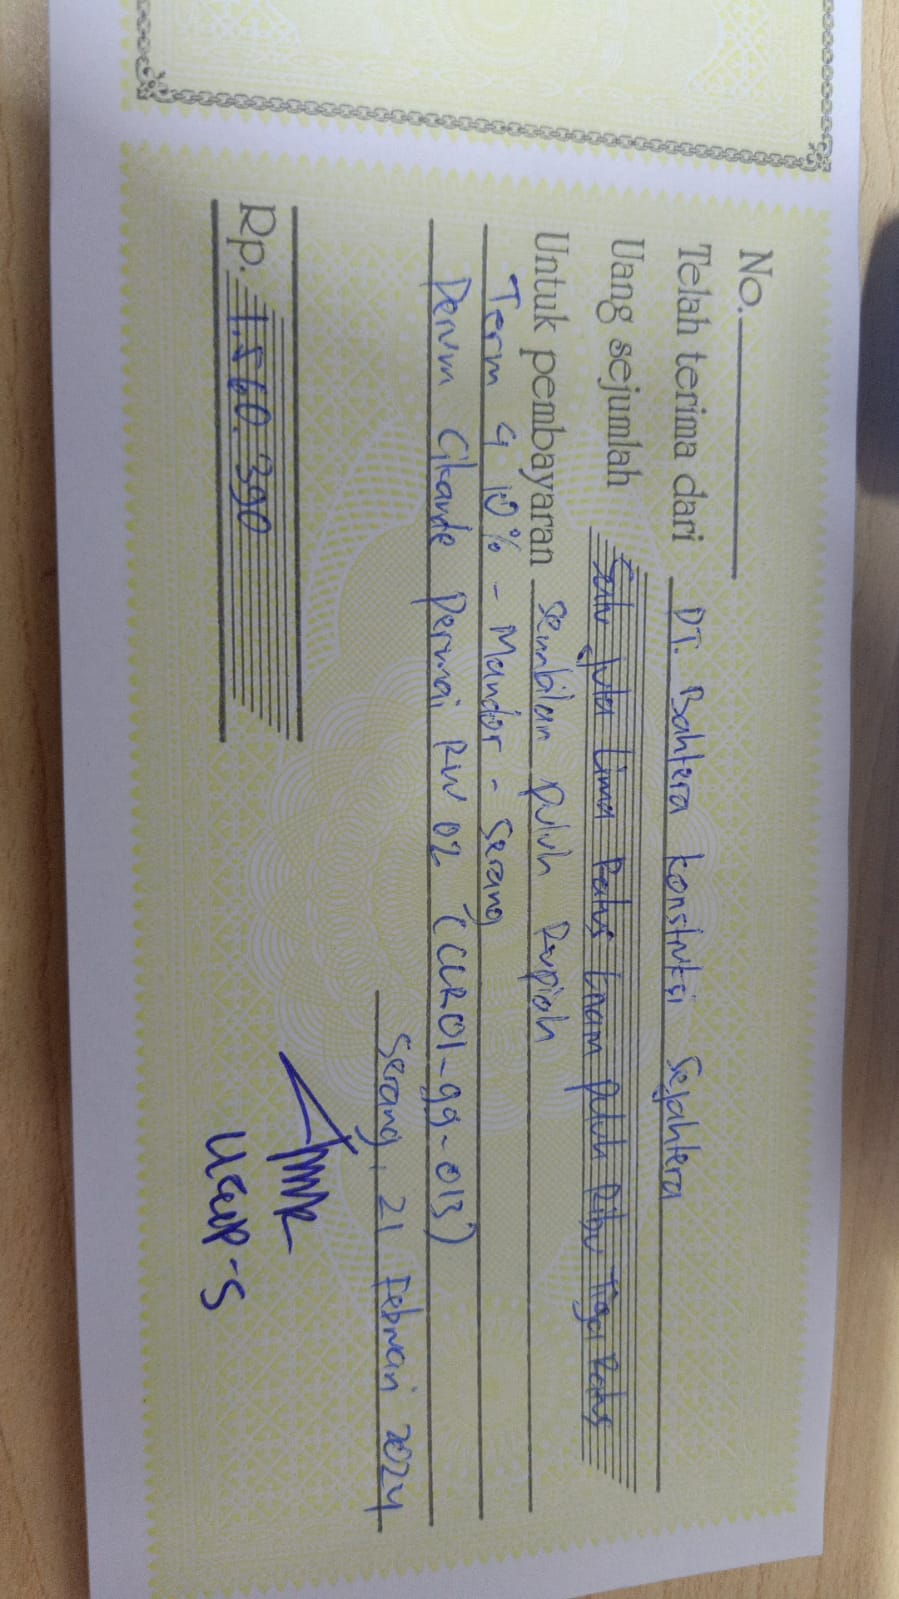 No.
Telah terima dari PT. Bahtera Konstruksi Sejahtera
Uang sejumlah Satu juta Lima Ratus Enam puluh Ribu Tiga Ratus
Untuk pembayaran Sembilan puluh Rupiah
Term 4 10% - Mandor - Serang
Perum Cikande Permai RW 02 (CCR01-99-013)
Serang, 21 Februari 2024
Rp. 1.560.390